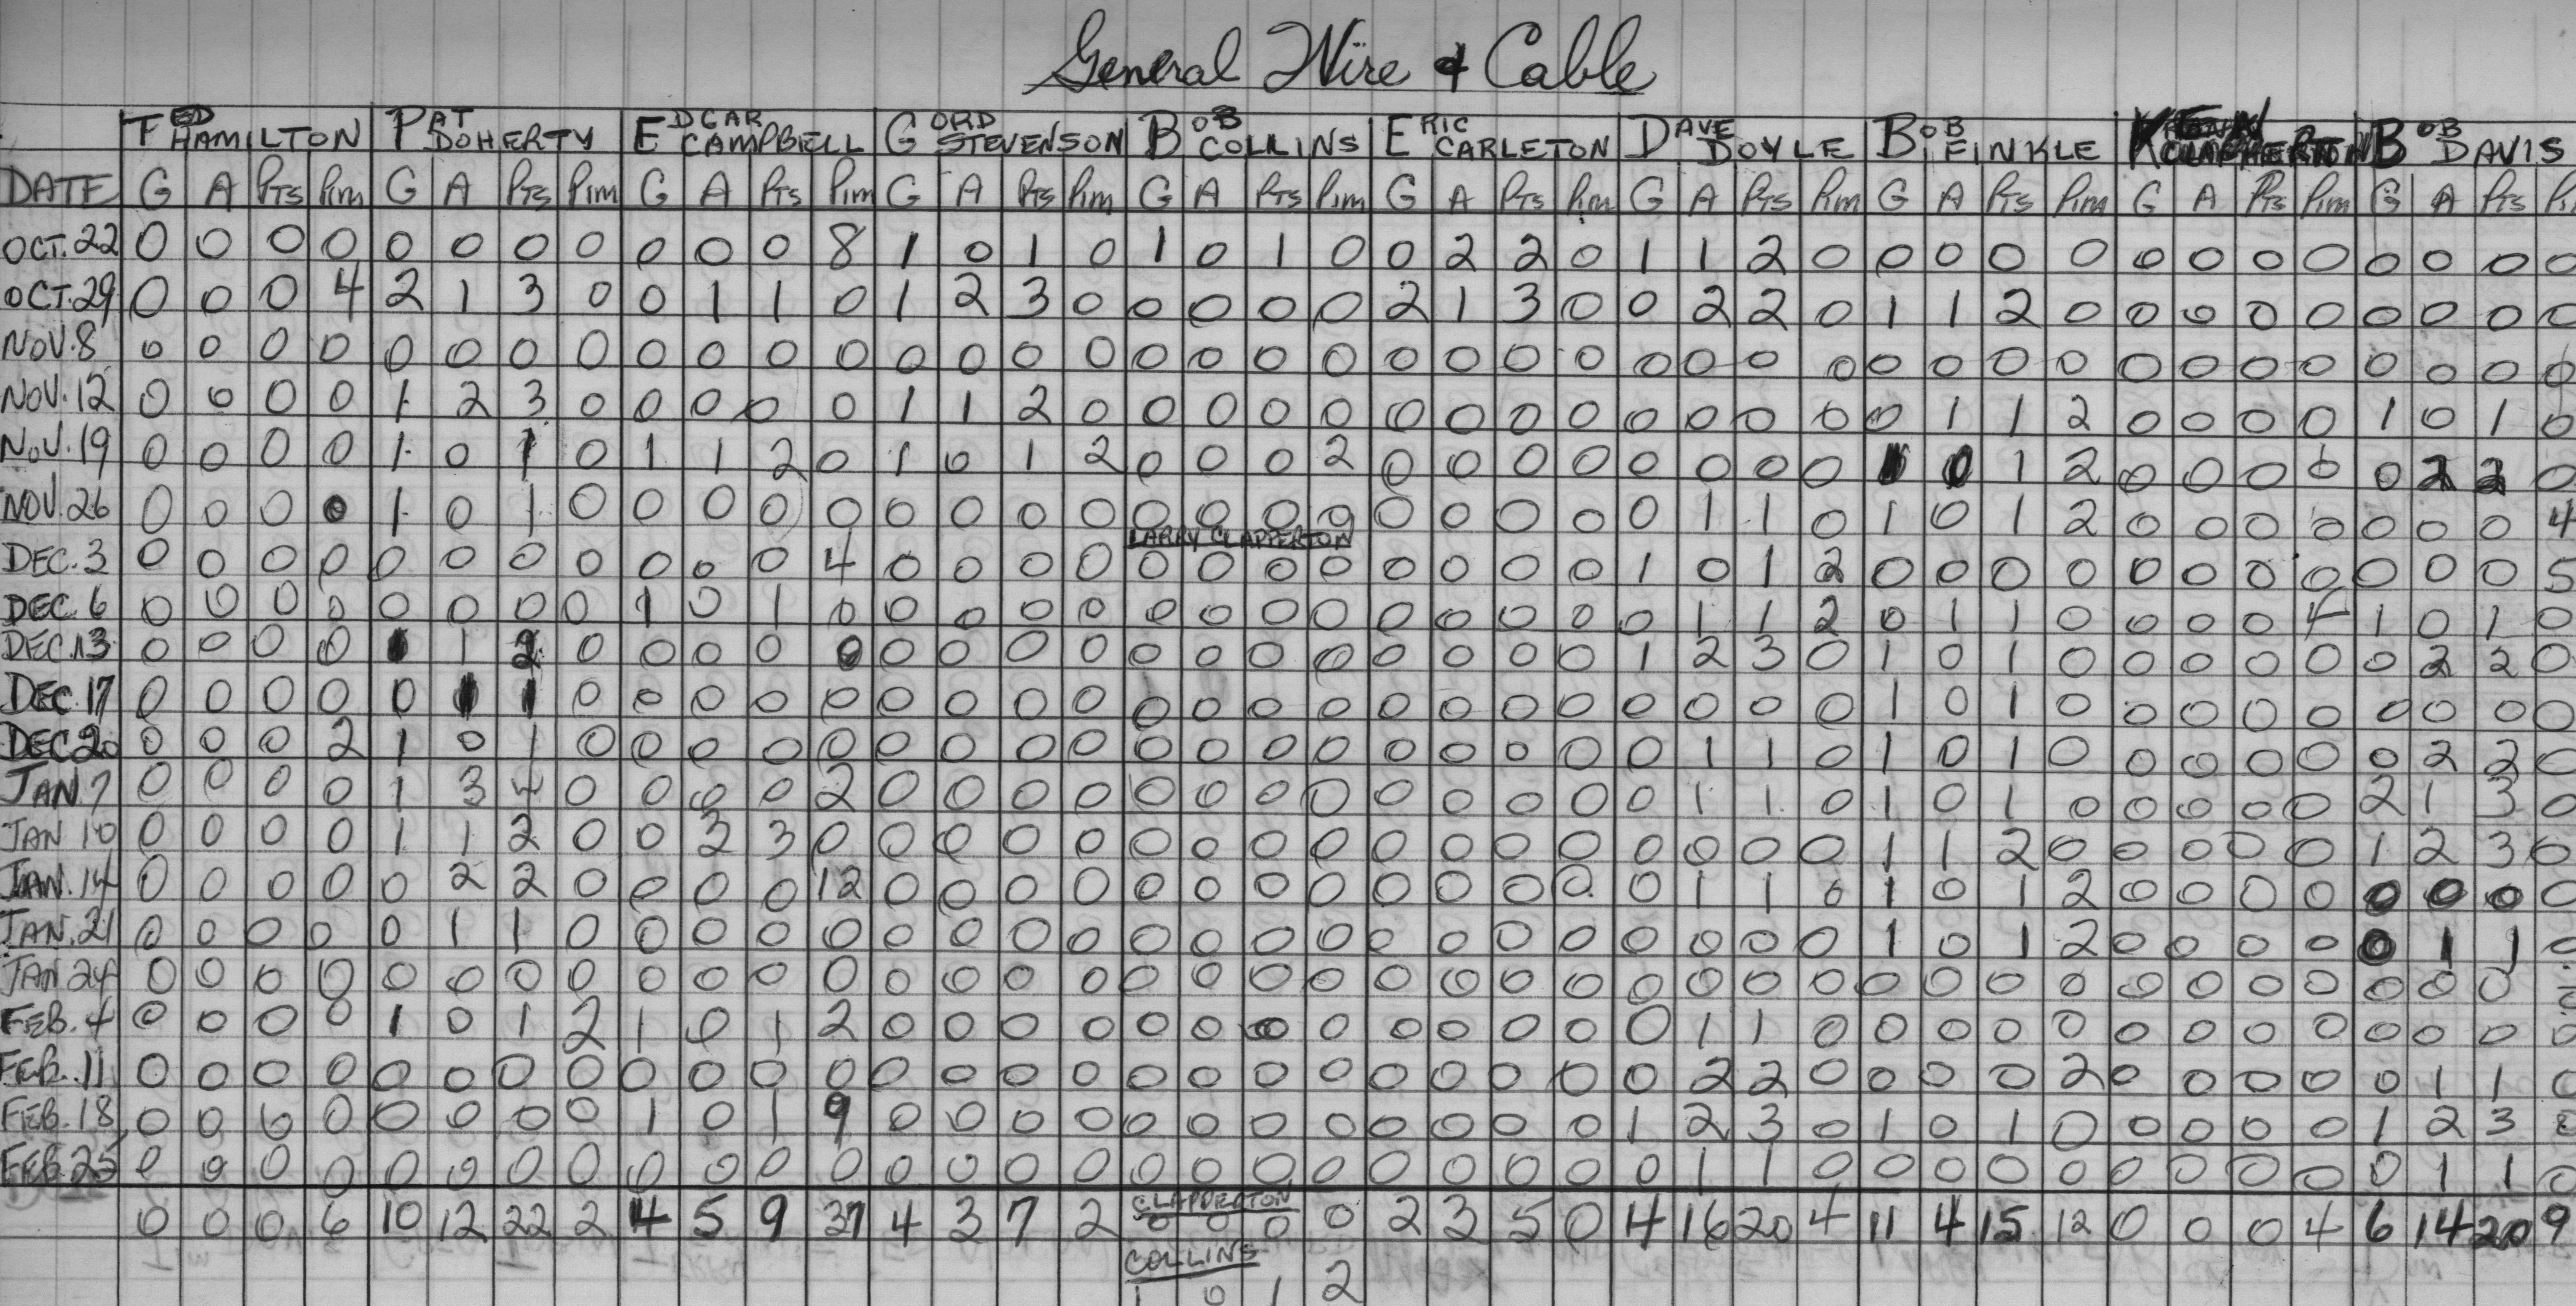 General Wire & Cable
TED HAMILTON PAT DOHERTY EDGAR CAMPBELL GORD STEVENSON BOB COLLINS ERIC CARLETON DAVE DOYLE BOB FINKLE KEN CLAPPERTON BOB DAVIS
DATE G A Pts Pim G A Pts Pim G A Pts Pim G A Pts Pim G A Pts Pim G A Pts Pim G A Pts Pim G A Pts Pim G A Pts Pim G A Pts
OCT. 22 0 0 0 0 0 0 0 0 0 0 0 8 1 0 1 0 1 0 1 0 0 2 2 0 1 1 2 0 0 0 0 0 0 0 0 0 0 0 0 0
OCT. 29 0 0 0 4 2 1 3 0 0 1 1 0 1 2 3 0 0 0 0 0 2 1 3 0 0 2 2 0 1 1 2 0 0 0 0 0 0 0 0 0
NOV. 8 0 0 0 0 0 0 0 0 0 0 0 0 0 0 0 0 0 0 0 0 0 0 0 0 0 0 0 0 0 0 0 0 0 0 0 0 0 0 0 0
NOV. 12 0 0 0 0 1 2 3 0 0 0 0 0 1 1 2 0 0 0 0 0 0 0 0 0 0 0 0 0 0 1 1 2 0 0 0 0 1 0 1 0
NOV. 19 0 0 0 0 1 0 1 0 1 1 2 0 1 0 1 2 0 0 0 2 0 0 0 0 0 0 0 0 1 0 1 2 0 0 0 0 0 2 2 0
NOV. 26 0 0 0 0 1 0 1 0 0 0 0 0 0 0 0 0 0 0 0 0 0 0 0 0 0 1 1 0 1 0 1 2 0 0 0 0 0 0 0 4
LARRY CLAPPERTON
DEC. 3 0 0 0 0 0 0 0 0 0 0 0 4 0 0 0 0 0 0 0 0 0 0 0 0 1 0 1 2 0 0 0 0 0 0 0 0 0 0 0 5
DEC. 6 0 0 0 0 0 0 0 0 1 0 1 0 0 0 0 0 0 0 0 0 0 0 0 0 0 1 1 2 0 1 1 0 0 0 0 4 1 0 1 0
DEC. 13 0 0 0 0 1 1 2 0 0 0 0 0 0 0 0 0 0 0 0 0 0 0 0 0 1 2 3 0 1 0 1 0 0 0 0 0 0 2 2 0
DEC. 17 0 0 0 0 0 1 1 0 0 0 0 0 0 0 0 0 0 0 0 0 0 0 0 0 0 0 0 0 1 0 1 0 0 0 0 0 0 0 0 0
DEC 20 0 0 0 2 1 0 1 0 0 0 0 0 0 0 0 0 0 0 0 0 0 0 0 0 0 1 1 0 1 0 1 0 0 0 0 0 0 2 2 0
JAN. 7 0 0 0 0 1 3 4 0 0 0 0 2 0 0 0 0 0 0 0 0 0 0 0 0 0 1 1 0 1 0 1 0 0 0 0 0 2 1 3 0
JAN 10 0 0 0 0 1 1 2 0 0 3 3 0 0 0 0 0 0 0 0 0 0 0 0 0 0 0 0 0 1 1 2 0 0 0 0 0 1 2 3 0
JAN. 14 0 0 0 0 0 2 2 0 0 0 0 12 0 0 0 0 0 0 0 0 0 0 0 0 0 1 1 0 1 0 1 2 0 0 0 0 0 0 0 0
JAN. 21 0 0 0 0 0 1 1 0 0 0 0 0 0 0 0 0 0 0 0 0 0 0 0 0 0 0 0 0 1 0 1 2 0 0 0 0 0 1 1 0
JAN 24 0 0 0 0 0 0 0 0 0 0 0 0 0 0 0 0 0 0 0 0 0 0 0 0 0 0 0 0 0 0 0 0 0 0 0 0 0 0 0
FEB. 4 0 0 0 0 1 0 1 2 1 0 1 2 0 0 0 0 0 0 0 0 0 0 0 0 0 1 1 0 0 0 0 0 0 0 0 0 0 0 0 0
FEB. 11 0 0 0 0 0 0 0 0 0 0 0 0 0 0 0 0 0 0 0 0 0 0 0 0 0 2 2 0 0 0 0 2 0 0 0 0 0 1 1 0
FEB. 18 0 0 0 0 0 0 0 0 1 0 1 9 0 0 0 0 0 0 0 0 0 0 0 0 1 2 3 0 1 0 1 0 0 0 0 0 1 2 3
FEB. 25 0 0 0 0 0 0 0 0 0 0 0 0 0 0 0 0 0 0 0 0 0 0 0 0 0 1 1 0 0 0 0 0 0 0 0 0 0 1 1 0
CLAPPERTON
0 0 0 6 10 12 22 2 4 5 9 37 4 3 7 2 0 0 0 0 2 3 5 0 4 16 20 4 11 4 15 12 0 0 0 4 6 14 20 9
COLLINS
1 0 1 2